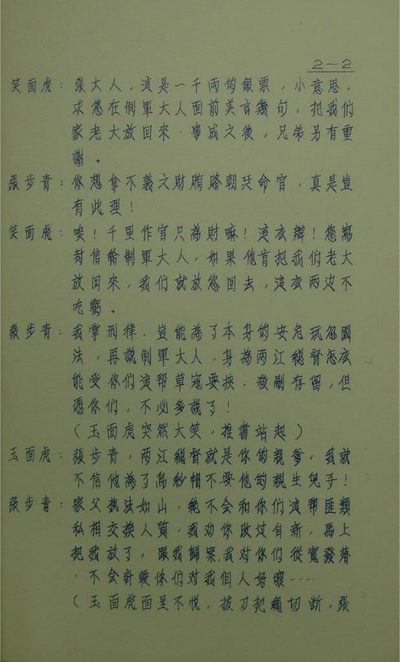 2-2
笑面虎：張大人，這是一千兩的銀票，小意思，
求您在制軍大人面前美言幾句，把我們
家老大放回來．事成之後，兄弟另有重
謝。
張步青：你想拿不義之財賄賂朝廷命官，真是豈
有此理！
笑面虎：唉！千里作官只為財嘛！這麼辦！您寫
封信給制軍大人，如果他肯把我們老大
放回來，我們就放您回去，這麼兩边不
吃虧。
張步青：我掌刑律．豈能為了本身的安危玩忽國
法，再說制軍大人，身為兩江總督怎麼
能受你們這幫草寇要挾，殺剮存留，但
憑你們，不必多說了！
（玉面虎突然大笑，推書站起）
玉面虎：張步青，兩江總督就是你的親爹，我就
不信他為了烏紗帽不要他的親生兒子！
張步青：家父執法如山，絕不会和你們這幫匪類
私相交換人質，我勸你改过自新，馬上
把我放了，跟我歸案，我对你們從寬發落
，不会計較你們对我個人好壞……
（玉面虎面呈不悅，拔刀把繩切斷，張